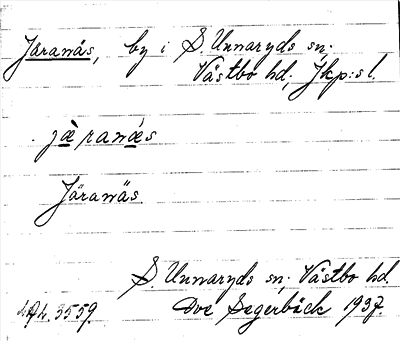 Järanäs, by i S. Unnaryds sn;
Västbo hd; Jkp:s l.
jæ̀ranæ̀s
Järanäs
S. Unnaryds sn; Västbo hd.
Ove Segerbäck 1937.
3559.